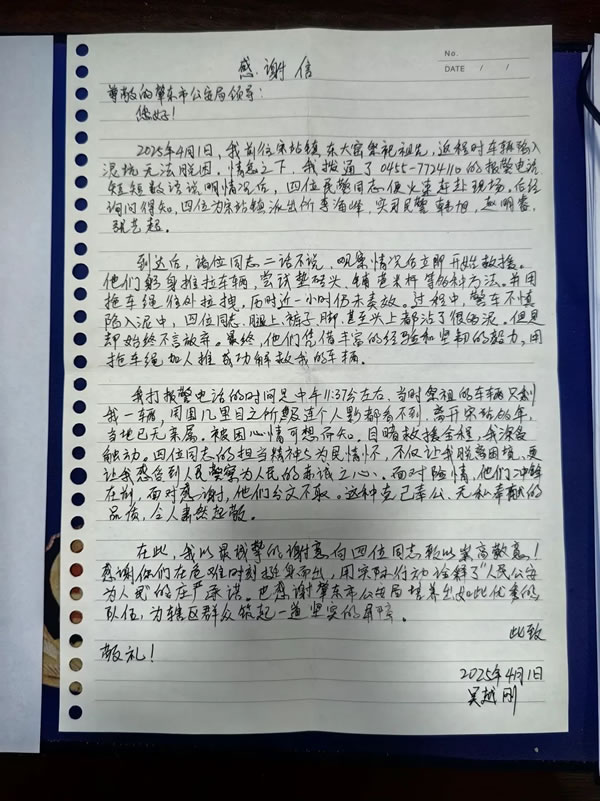 No.
DATE / /
感谢信
尊敬的肇东市公安局领导：
您好！
2025年4月1日，我前往宋站镇东大窑祭祀祖先，返程时车辆陷入
泥坑无法脱困。情急之下，我拨通了0455-7724110的报警电话
短短数语说明情况后，四位民警同志便火速赶赴现场。后经
询问得知，四位为宋站镇派出所李海峰，实习民警韩旭，赵明睿，
张艺起。
到达后，诸位同志二话不说，观察情况后立即开始救援。
他们躬身推拉车辆，尝试垫砖头、铺苞米杆等多种方法。并用
拖车绳往外拉拽，历时近一小时仍未奏效。过程中，警车不慎
陷入泥中，四位同志腿上、裤子、脚、甚至头上都沾了很多泥。但是
却始终不言放弃。最终，他们凭借丰富的经验和坚韧的毅力，用
拖车绳加人推成功解救我的车辆。
我打报警电话的时间是中午11:37分左右，当时祭祖的车辆只剩
我一辆，周围几里目之所及连个人影都看不到，离开宋站多年，
当地已无亲属。被困心情可想而知。目睹救援全程，我深受
触动。四位同志的担当精神与为民情怀，不仅让我脱离困境，更
让我感召到人民警察为人民的赤诚之心。面对险情，他们冲锋
在前，面对感谢，他们分文不取。这种克己奉公、无私奉献的
品质，令人肃然起敬。
在此，我以最诚挚的谢意向四位同志致以崇高敬意！
感谢你们在危难时刻挺身而出，用实际行动诠释了“人民公安
为人民”的庄严承诺。也感谢肇东市公安局培养出如此优秀的
队伍，为辖区群众筑起一道坚实的屏障。
此致
敬礼！
2025年4月1日
吴越刚